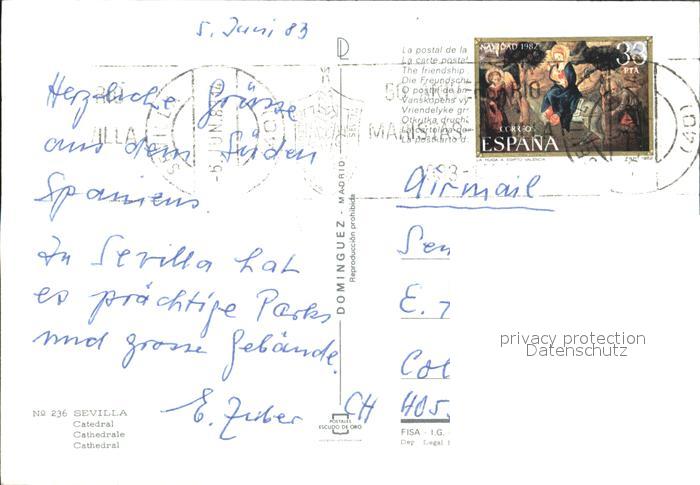 5. Juni 83
Herzliche Grüsse
aus dem Süden
Spaniens.
In Sevilla hat
es prächtige Parks
und grosse Gebäude.
E. Zuber
Nº 236 SEVILLA
Catedral
Cathedrale
Cathedral
DOMINGUEZ - MADRID
Reproducción prohibida
POSTALES
ESCUDO DE ORO
La postal de la
La carte postal
The friendship
Die Freundsch
O postal de am
Vanskopens vy
Vriendelyke gr
Otkritka druch
NAVIDAD 1982
33
PTA
CORREO
ESPAÑA
LA HUIDA A EGIPTO VALENCIA
Airmail
Sen
E.
Col
CH 405.
privacy protection
Datenschutz
FISA - I.G.
Dep. Legal